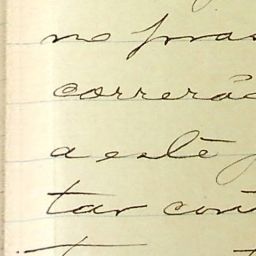 no praso
correrão
a este
tar con